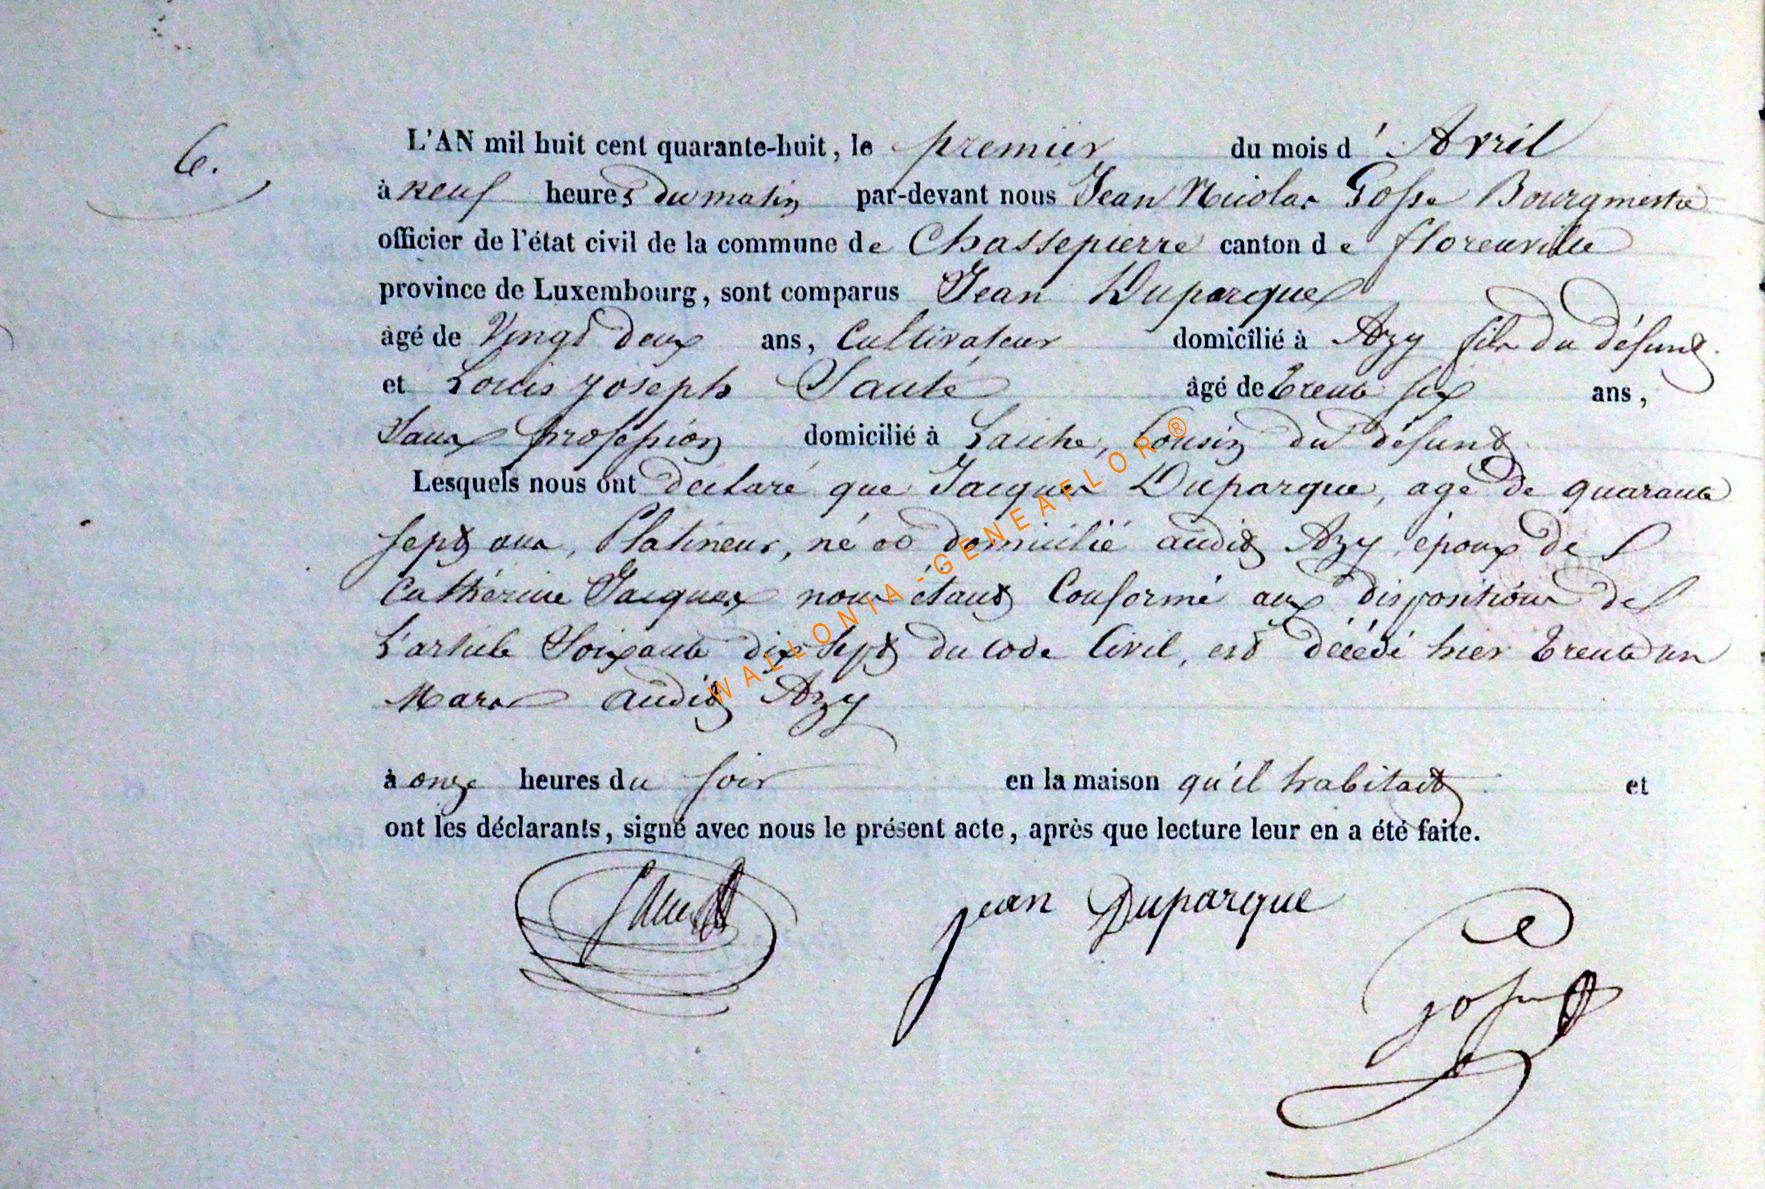 6.
L'AN mil huit cent quarante-huit, le premier du mois d'Avril
à neuf heures du matin par-devant nous Jean Nicolas Gosse Bourgmestre
officier de l'état civil de la commune de Chassepierre canton de florenville
province de Luxembourg, sont comparus Jean Duparque
âgé de Vingt deux ans, Cultivateur domicilié à Azy fils du défunt.
et Louis joseph Sauté âgé de trente six ans,
Sans profession domicilié à Laiche, Cousin du défunt
Lesquels nous ont déclaré que Jacques Duparque, agé de quarante
sept ans, Platineur, né et domicilié audit Azy, époux de
Cathérine Jacques nous étant Conformé aux dispositions de
L'article Soixante dix Sept du code Civil, est décédé hier trente un
Mars audit Azy
à onze heures du soir en la maison qu'il habitait et
ont les déclarants, signé avec nous le présent acte, après que lecture leur en a été faite.
jean Duparque
Gosse
WALLONIA-GENEAFLOR®